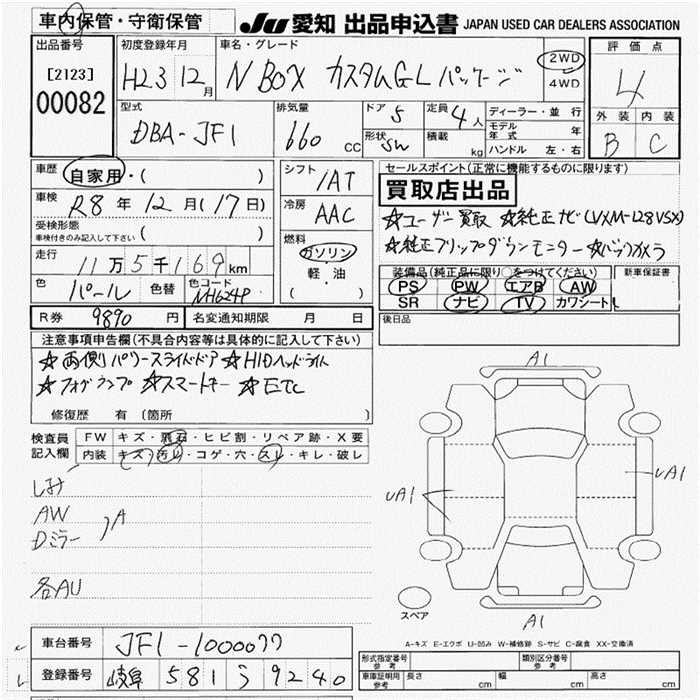 車内保管・守衛保管
JU 愛知 出品申込書 JAPAN USED CAR DEALERS ASSOCIATION
出品番号
[2123]
00082
初度登録年月
H23 12月
車名・グレード
N BOX カスタムGLパッケージ
2WD
4WD
評価点
4
外装 内装
B C
型式
DBA-JF1
排気量
660 CC
ドア 5
形状 SW
定員 4人
積載 kg
ディーラー・並行
モデル年式 年
ハンドル 左・右
車歴
自家用・( )
車検
R8年 12月(17日)
受検形態
車検付きのみ記入して下さい( )
走行
11万5千169km
色 パール 色替 色コード NH624P
シフト
1AT
冷房
AAC
燃料
ガソリン
軽・油
( )
セールスポイント(正常に機能するものに限ります)
買取店出品
☆ユーザー買取 ☆純正ナビ(VXM-128VSX)
☆純正フリップダウンモニター ☆バックカメラ
装備品(純正品に限り○をつけてください)
PS PW エアB AW
SR ナビ TV カワシート
新車保証書
R券 9890円 名変通知期限 月 日
後日品
注意事項申告欄(不具合内容等は具体的に記入して下さい)
☆両側パワースライドドア ☆HIDヘッドライト
☆フォグランプ ☆スマートキー ☆ETC
修復歴 有(箇所
検査員
記入欄
FW キズ・飛石・ヒビ割・リペア跡・X要
内装 キズ・汚レ・コゲ・穴・スレ・キレ・破レ
しみ
AW
Dミラー
A
各AU
A1
UA1
UA1
A1
スペア
A-キズ E-エクボ U-凹み W-補修跡 S-サビ C-腐食 XX-交換済
車台番号 JF1-1000077
登録番号 岐阜 581 う 9240
形式指定番号 参考
類別区分番号 参考
車庫証明用 参考 長さ cm 幅 cm 高さ cm